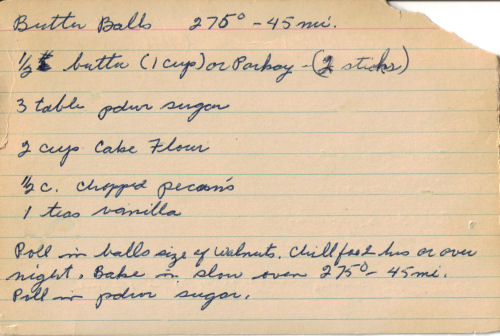 Butter Balls 275° - 45 mi.
1/2 # butter (1 cup) or Parkay - (2 sticks)
3 table pdwr sugar
2 cup Cake Flour
1/2 c. chopped pecan's
1 teas vanilla
Roll in balls size of walnuts. Chill for 2 hrs or over
night. Bake in slow oven 275° - 45 mi.
Roll in pdwr sugar.